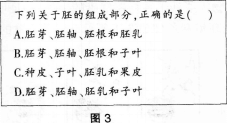 下列关于胚的组成部分,正确的是(  )
A.胚芽、胚轴、胚根和胚乳
B.胚芽、胚轴、胚根和子叶
C.种皮、子叶、胚乳和果皮
D.胚芽、胚轴、胚乳和子叶
图 3